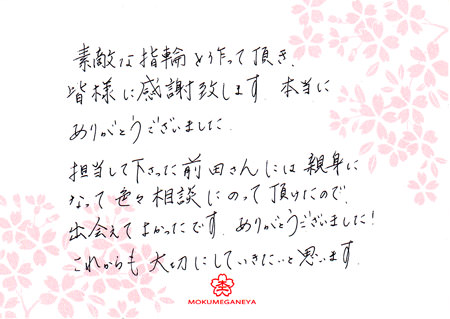 素敵な指輪を作って頂き、
皆様に感謝致します。本当に
ありがとうございました。
担当して下さった前田さんには親身に
なって色々相談にのって頂けたので、
出会えてよかったです。ありがとうございました!
これからも大切にしていきたいと思います。
MOKUMEGANEYA